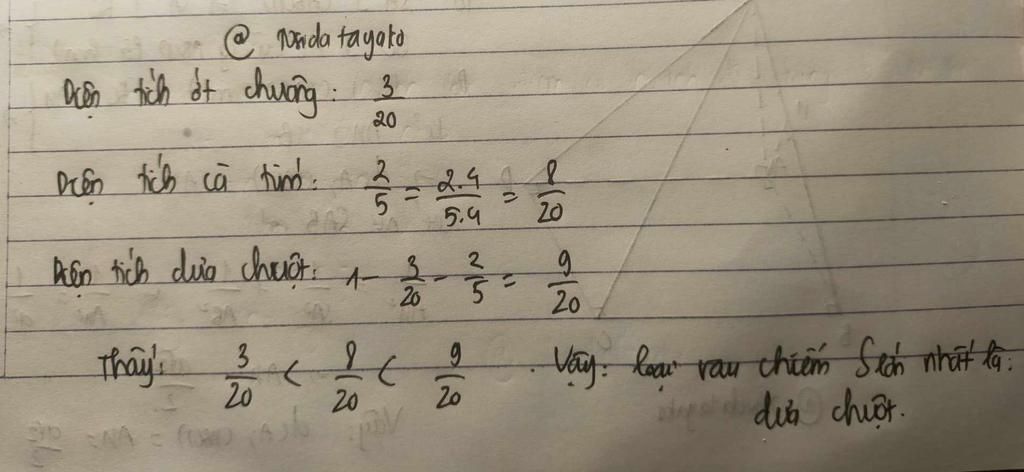 @ nơidatayoto
Diện tích ớt chuông: 3/20
Diện tích cà tím: 2/5 = 2.4/5.4 = 8/20
Diện tích dưa chuột: 1 - 3/20 - 2/5 = 9/20
Thấy: 3/20 < 8/20 < 9/20. Vậy: loại rau chiếm S lớn nhất là:
dưa chuột.